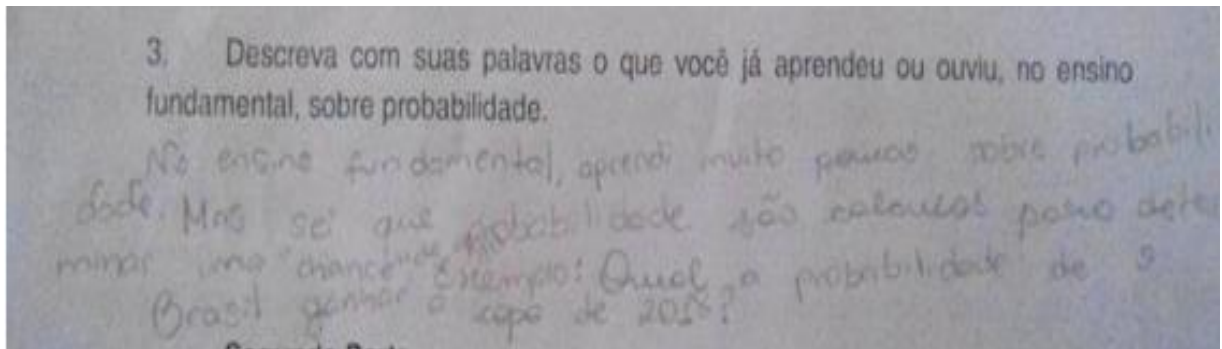 3. Descreva com suas palavras o que você já aprendeu ou ouviu, no ensino
fundamental, sobre probabilidade.
No ensino fundamental, aprendi muito pouco sobre probabili
dade. Mas sei que probabilidade são calculos para deter
minar uma "chance" de Exemplo: Qual a probabilidade de o
Brasil ganhar a copa de 2018?